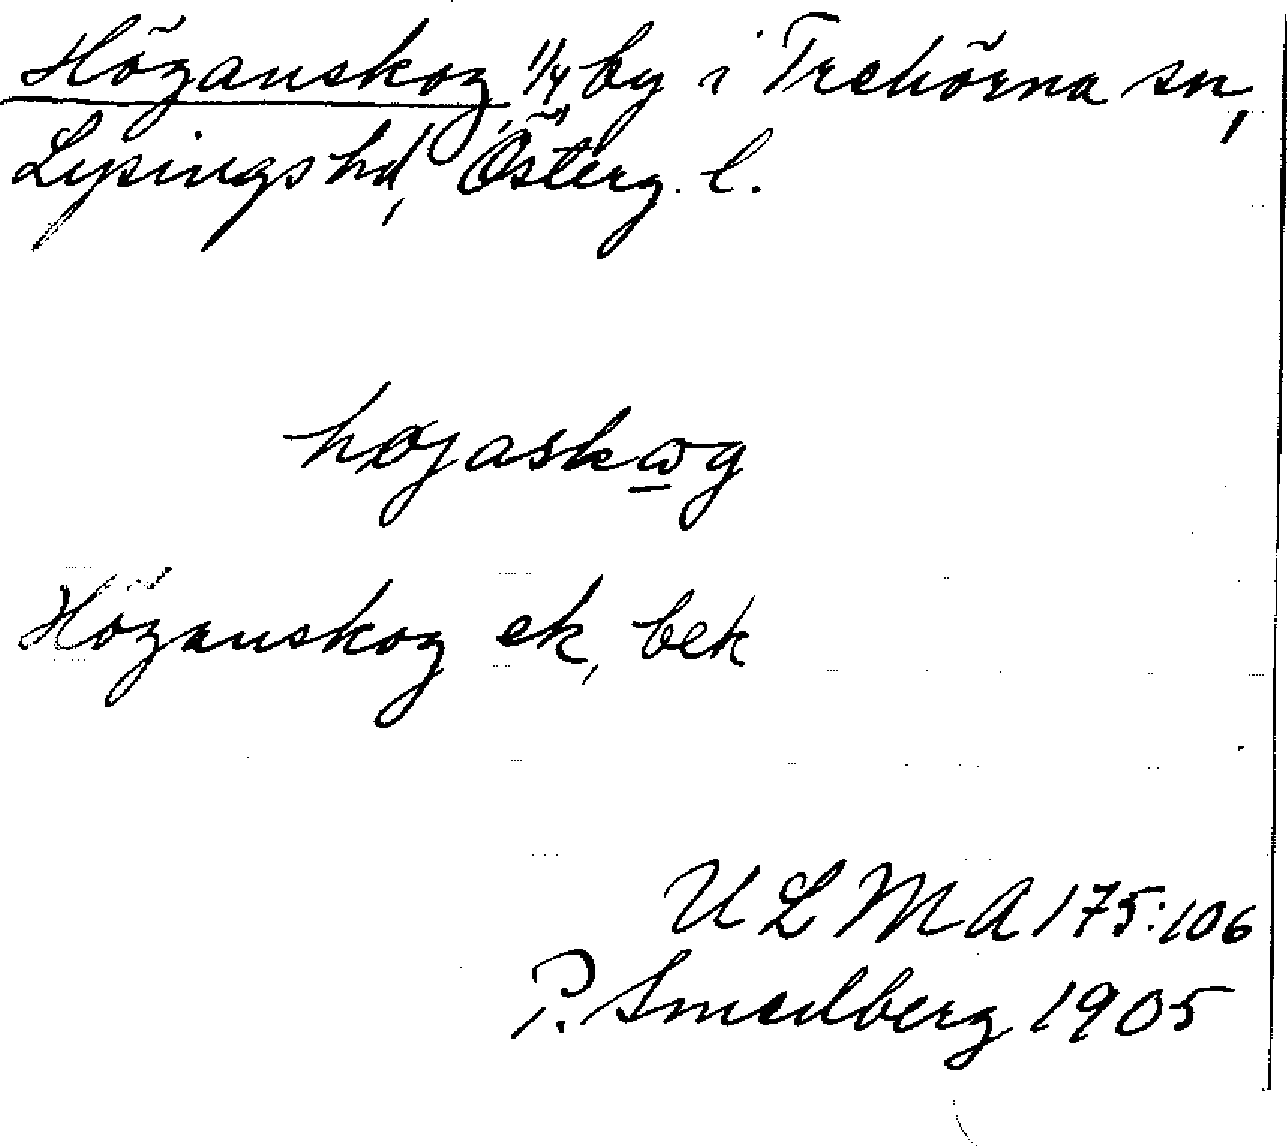 Höganskog, 1/4 by i Trehörna sn,
Lysings hd, Österg. l.
højaskωg
Höganskog ek, bek
ULMA 175:106
P. Smedberg 1905